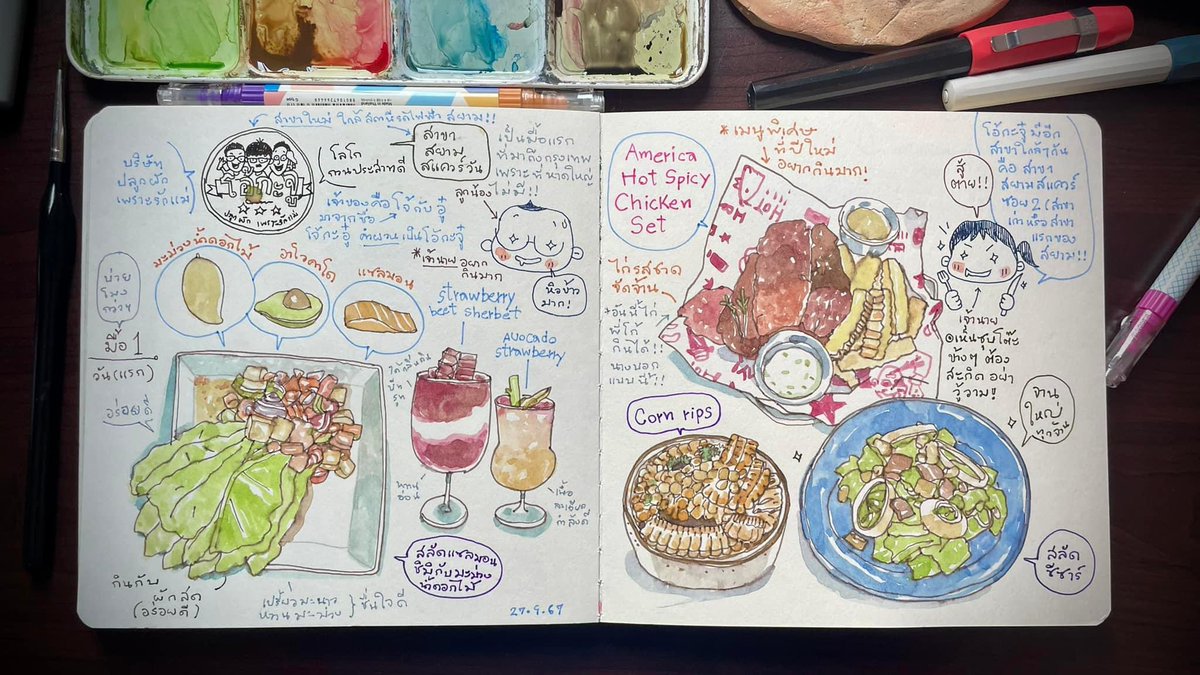 สาขาใหม่ ใกล้สถานีรถไฟฟ้า สยาม!!
บริษัท
ปลูกผัก
เพราะรักแม่
โอ้กะจู๋
ปลูกผัก เพราะรักแม่
โลโก้
สาขา
สยาม
สแควร์วัน
เป็นมื้อแรก
ที่มาถึงกรุงเทพ
เพราะที่หาดใหญ่
ไม่มี!!
ลูกน้อง
เจ้าของคือ โจ้ กับ อู๋
มาจากชื่อ
โจ้กะอู๋ คำผวนเป็นโอ้กะจู๋
*เจ้านาย อยาก
กินมาก
หิวข้าว
มาก!
มะม่วงน้ำดอกไม้
อาโวคาโด
แซลมอน
บ่าย
โมง
กว่าๆ
มื้อ 1
วัน(แรก)
อร่อยดี
strawberry
beet sherbet
Avocado
strawberry
หวาน
อ่อน
เนื้อ
กำลังดี
สลัดแซลมอน
ซีวิเชกับมะม่วง
น้ำดอกไม้
กินกับ
ผักสด
(อร่อยดี)
เปรี้ยวมะนาว
หวานมะม่วง
ชื่นใจดี
27.9.67
America
Hot Spicy
Chicken
Set
*เมนูพิเศษ
ที่ปีใหม่
อยากกินมาก!
Hot
สู้
ตาย!!
โอ้กะจู๋มีอีก
สาขาใกล้ๆกัน
คือ สาขา
สยามสแควร์
ซอย 2 (สาขา
เก่า หรือ สาขา
แรกของ
สยาม!!
ไก่รสชาด
จัดจ้าน
*อันนี้ไก่
พี่โก้
กินได้!!
นางบอก
แบบนี้!!
เจ้านาย
เห็นซุปโต๊ะ
ข้างๆ ต้อง
สะกิด อย่า
วู่วาม!!
Corn rips
จาน
ใหญ่
ทุกจาน
สลัด
ซีซาร์